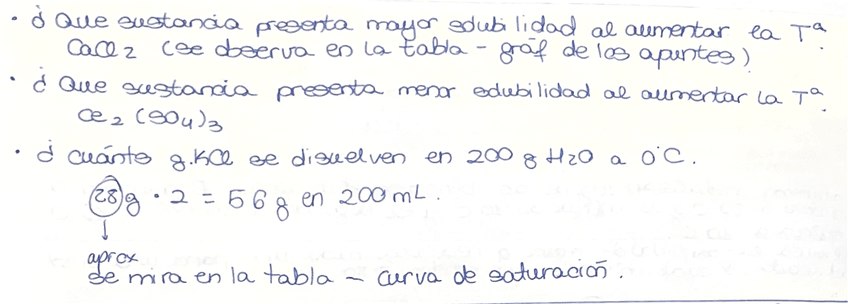 · ¿ Que sustancia presenta mayor solubilidad al aumentar la Tª.
CaCl2 (se observa en la tabla - gráf de los apuntes)
· ¿ Que sustancia presenta menor solubilidad al aumentar la Tª.
Ce2 (SO4)3
· ¿ cuánto g.KCl se disuelven en 200 g H2O a 0°C.
28 g · 2 = 56 g en 200 mL.
↓
aprox
se mira en la tabla - curva de saturación.